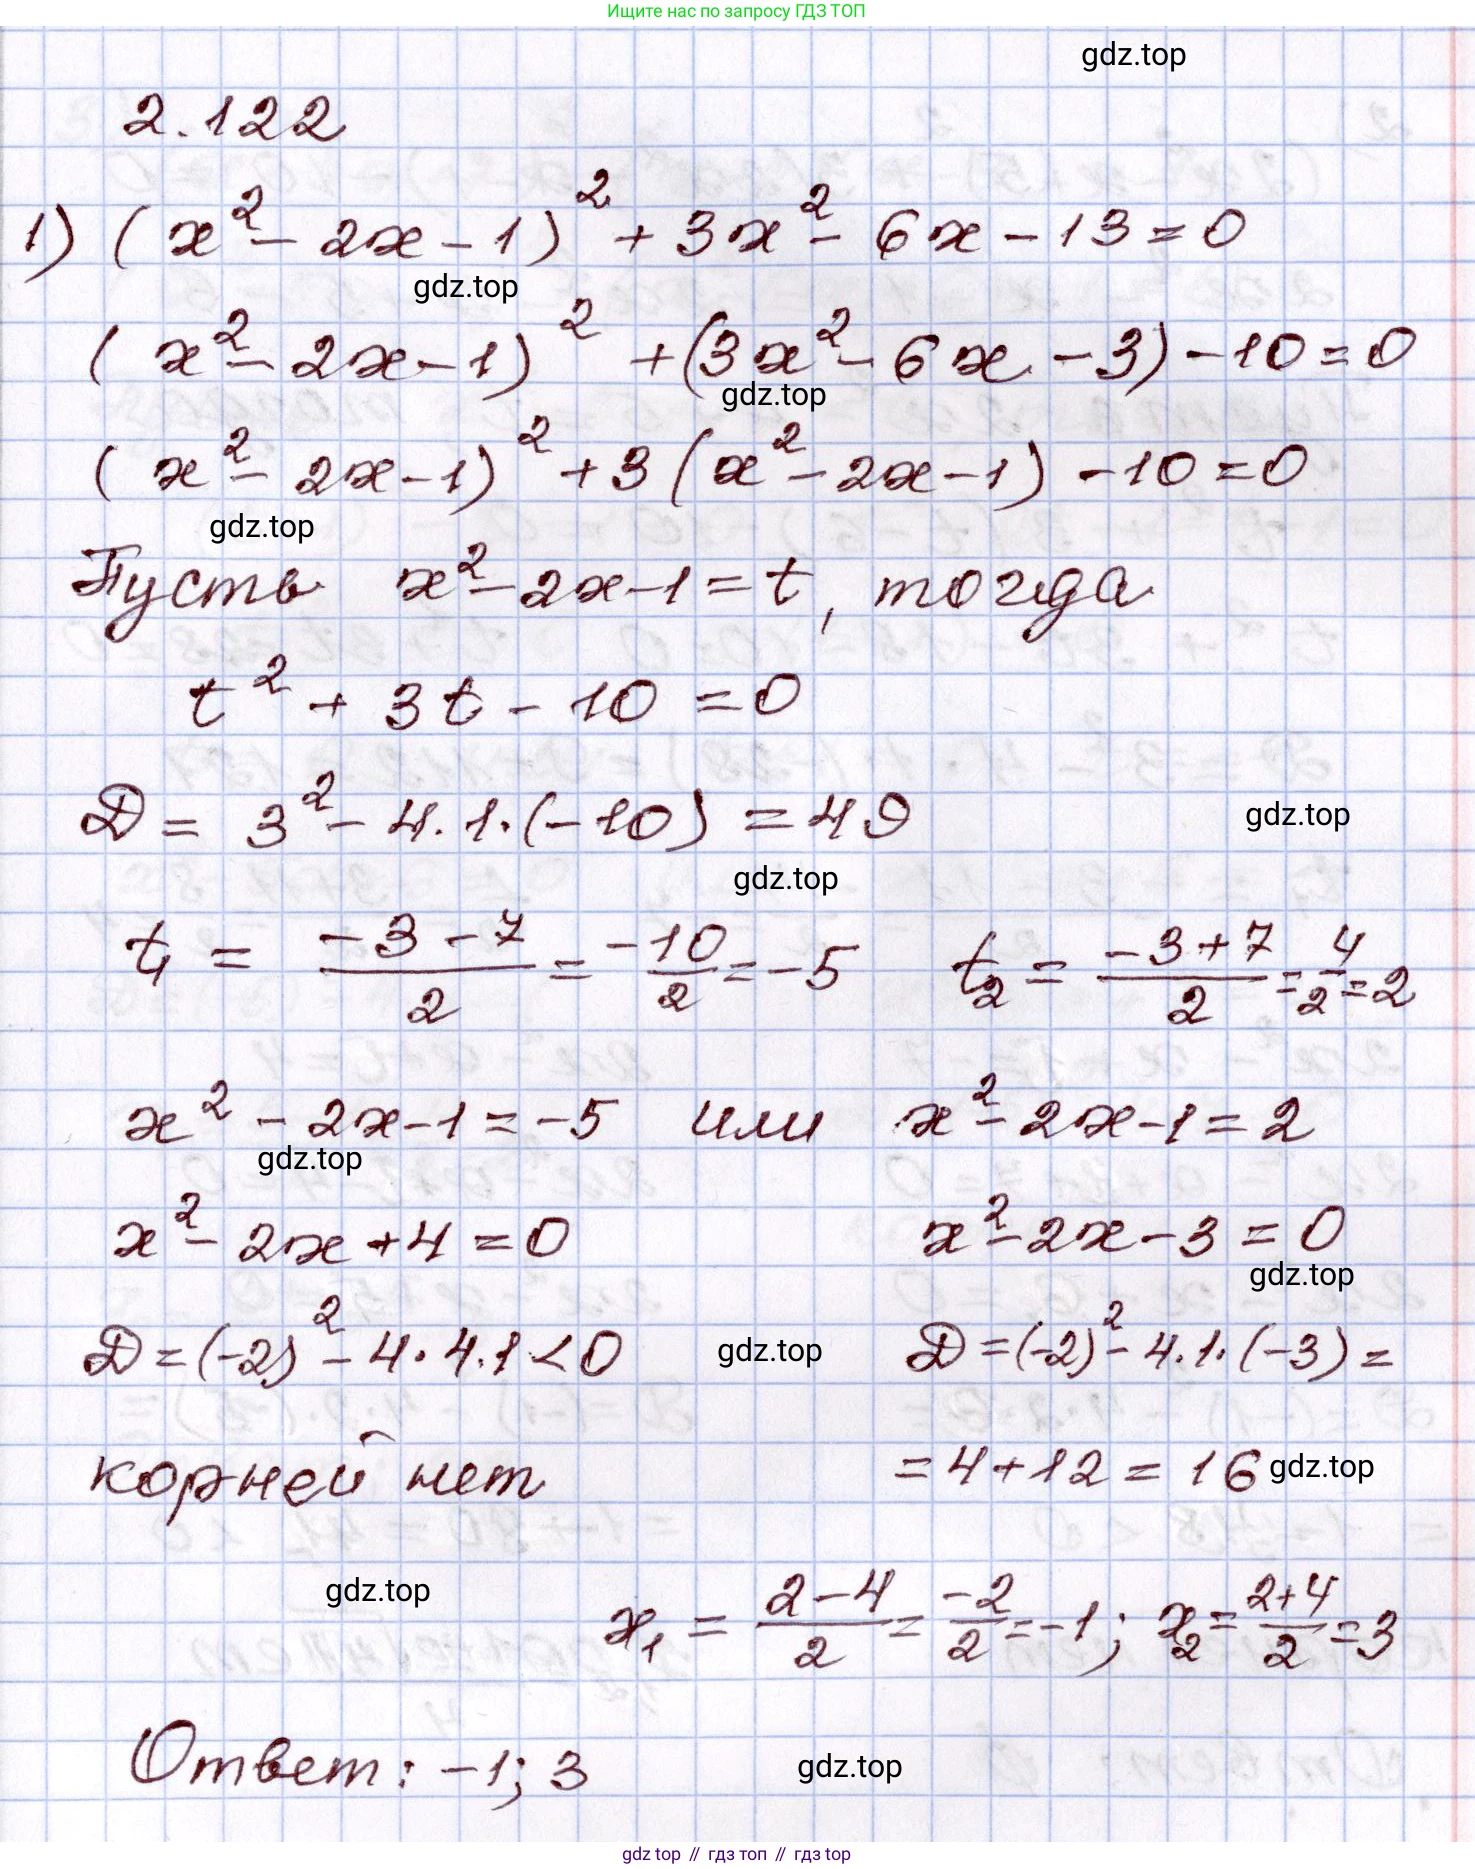 Ищите нас по запросу ГДЗ ТОП
gdz.top
2.122
1) (x² - 2x - 1)² + 3x² - 6x - 13 = 0
gdz.top
(x² - 2x - 1)² + (3x² - 6x - 3) - 10 = 0
gdz.top
(x² - 2x - 1)² + 3(x² - 2x - 1) - 10 = 0
gdz.top
Пусть x² - 2x - 1 = t, тогда
t² + 3t - 10 = 0
D = 3² - 4·1·(-10) = 49
gdz.top
gdz.top
t₁ = (-3-7)/2 = -10/2 = -5 t₂ = (-3+7)/2 = 4/2 = 2
x² - 2x - 1 = -5 или x² - 2x - 1 = 2
gdz.top
x² - 2x + 4 = 0 x² - 2x - 3 = 0
gdz.top
D = (-2)² - 4·4·1 < 0 gdz.top D = (-2)² - 4·1·(-3) =
корней нет = 4 + 12 = 16 gdz.top
gdz.top
x₁ = (2-4)/2 = -2/2 = -1; x₂ = (2+4)/2 = 3
Ответ: -1; 3
gdz.top
gdz top // гдз топ // gdz top